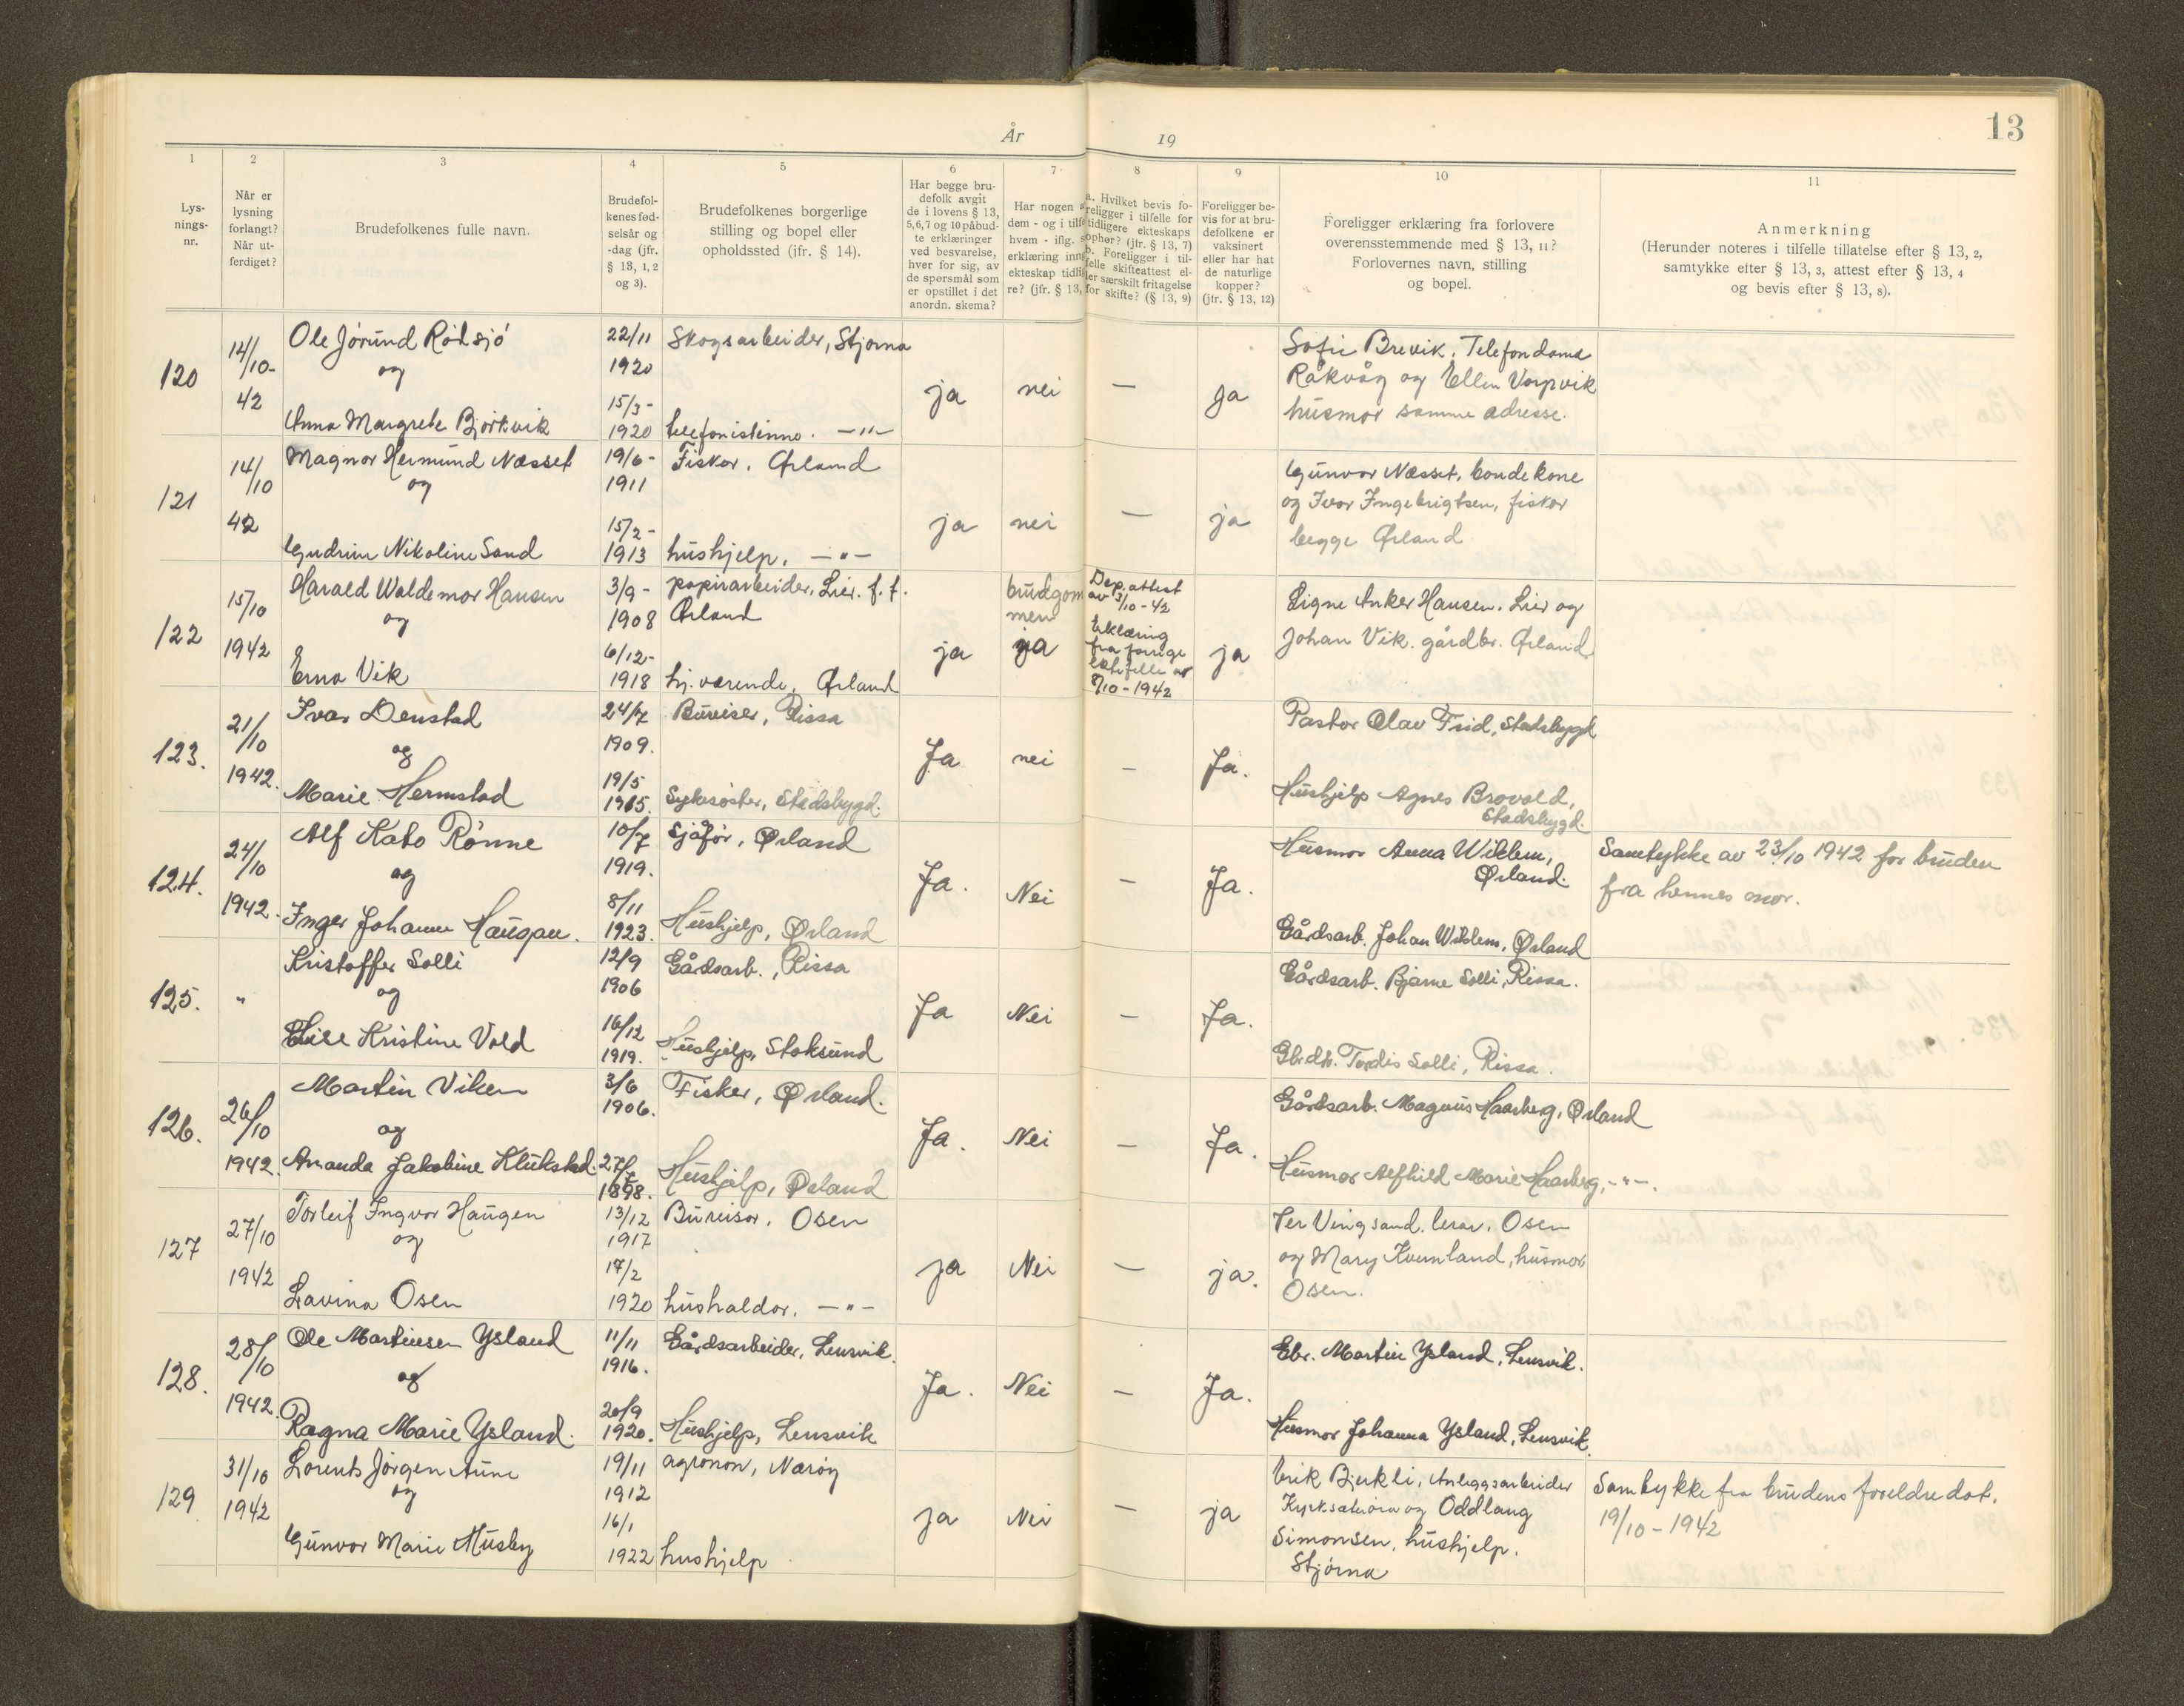 År 19
13
1 2 3 4 5 6 7 8 9 10 11
Lys-
nings-
nr.
Når er
lysning
forlangt?
Når ut-
ferdiget?
Brudefolkenes fulle navn.
Brudefol-
kenes fød-
selsår og
-dag (jfr.
§ 13, 1, 2
og 3).
Brudefolkenes borgerlige
stilling og bopel eller
opholdssted (jfr. § 14).
Har begge bru-
defolk avgit
de i lovens § 13,
5,6,7 og 10 påbud-
te erklæringer
ved besvarelse,
hver for sig, av
de spørsmål som
er opstillet i det
anordn. skema?
Har nogen
dem - og i tilf
hvem - iflg.
erklæring inn
ekteskap tidli
re? (jfr. § 13,
a. Hvilket bevis fo-
religger i tilfelle for
tidligere ekteskaps
ophør? (jfr. § 13, 7)
b. Foreligger i til-
felle skifteattest el-
ler særskilt fritagelse
for skifte? (§ 13, 9)
Foreligger be-
vis for at bru-
defolkene er
vaksinert
eller har hat
de naturlige
kopper?
(jfr. § 13, 12)
Foreligger erklæring fra forlovere
overensstemmende med § 13, 11?
Forlovernes navn, stilling
og bopel.
Anmerkning
(Herunder noteres i tilfelle tillatelse efter § 13, 2,
samtykke efter § 13, 3, attest efter § 13, 4
og bevis efter § 13, 8).
120
14/10-
42
Ole Jørund Rödsjö
og
Anna Margrete Bjørkvik
22/11
1920
15/3-
1920
Skogsarbeider, Stjørna
telefonistinne. —"—
ja
nei
—
ja
Sofie Brevik. Telefondame
Råkvåg og Ellen Varpvik
husmor samme adresse.
121
14/10
42
Magnor Hermund Næsset
og
Gudrun Nikoline Sand
19/6-
1911
15/2-
1913
Fisker. Ørland
hushjelp. —"—
ja
nei
—
ja
Gunvor Næsset, bondekone
og Ivar Ingebrigtsen, fisker
begge Ørland
122
15/10
1942
Harald Waldemar Hansen
og
Erna Vik
3/9-
1908
6/12-
1918
papirarbeider, Lier. f. t.
Ørland
hj. værende. Ørland
ja
brudgom
men
ja
Dep. attest
av 3/10-42
Erklæring
fra forrige
ektefelle av
8/10-1942
ja
Signe Anker Hansen. Lier og
Johan Vik. gårdbr. Ørland
123.
21/10
1942.
Ivar Denstad
og
Marie Hermstad
24/7
1909.
19/5
1915.
Bureiser, Rissa
Sykesøster, Stadsbygd.
Ja
nei
—
Ja.
Pastor Olav Frid, Stadsbygd
Hushjelp Agnes Brovold,
Stadsbygd.
124.
24/10
1942.
Alf Kato Rønne
og
Inger Johanne Haugan.
10/7
1919.
8/11
1923.
Sjåfør, Ørland
Hushjelp, Ørland
Ja.
Nei
—
Ja.
Husmor Anna Wiklem,
Ørland.
Gårdsarb. Johan Wiklem, Ørland
Samtykke av 23/10 1942 for bruden
fra hennes mor.
125.
"
Kristoffer Solli
og
Elise Kristine Vold
12/9
1906
16/12
1919.
Gårdsarb., Rissa
Hushjelp, Stoksund
Ja
Nei
—
Ja.
Gårdsarb. Bjarne Solli, Rissa.
Gbrdtr. Tordis Solli, Rissa.
126.
26/10
1942.
Martin Viken
og
Ananda Jakobine Klukstad.
3/6
1906.
27/7
1898.
Fisker, Ørland.
Hushjelp, Ørland
Ja.
Nei
—
Ja.
Gårdsarb. Magnus Haarberg, Ørland
Husmor Alfhild Marie Haarberg, -"-.
127
27/10
1942
Torleif Ingvar Haugen
og
Lavina Osen
13/12
1917
17/2
1920
Bureiser. Osen
husholder. —"—
ja
Nei
—
ja.
Per Vingsand. lærer. Osen
og Mary Kvernland, husmor
Osen.
128.
28/10
1942.
Ole Martinsen Ysland
og
Ragna Marie Ysland.
11/11
1916.
20/9
1920.
Gårdsarbeider, Lensvik.
Hushjelp, Lensvik
Ja.
Nei
—
Ja.
Gbr. Martin Ysland, Lensvik.
Husmor Johanna Ysland, Lensvik.
129
31/10
1942
Lorents Jørgen Aune
og
Gunvor Marie Husby
19/11
1912
16/1
1922
agronom, Nærøy
hushjelp
ja
Nei
—
ja
Erik Bjerkli, Anleggsarbeider
Kyrksæterøra og Oddlaug
Simonsen, hushjelp.
Stjørna
Samtykke fra brudens foreldre dat.
19/10-1942